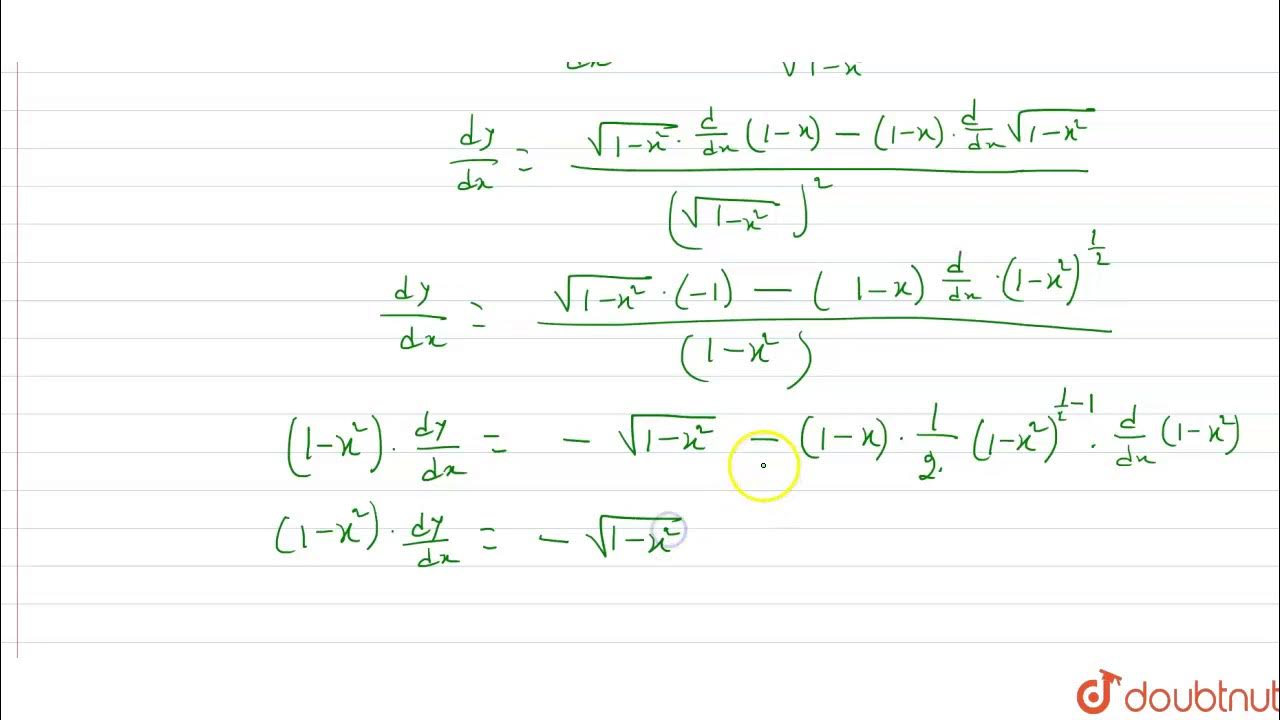 dx √1-x
dy/dx = (√(1-x²) · d/dx (1-x) - (1-x) · d/dx √(1-x²)) / (√(1-x²))²
dy/dx = (√(1-x²) · (-1) - (1-x) d/dx · (1-x²)^(1/2)) / (1-x²)
(1-x²) · dy/dx = - √(1-x²) - (1-x) · 1/2 · (1-x²)^(1/2-1) · d/dx (1-x²)
(1-x²) · dy/dx = - √(1-x²)
doubtnut